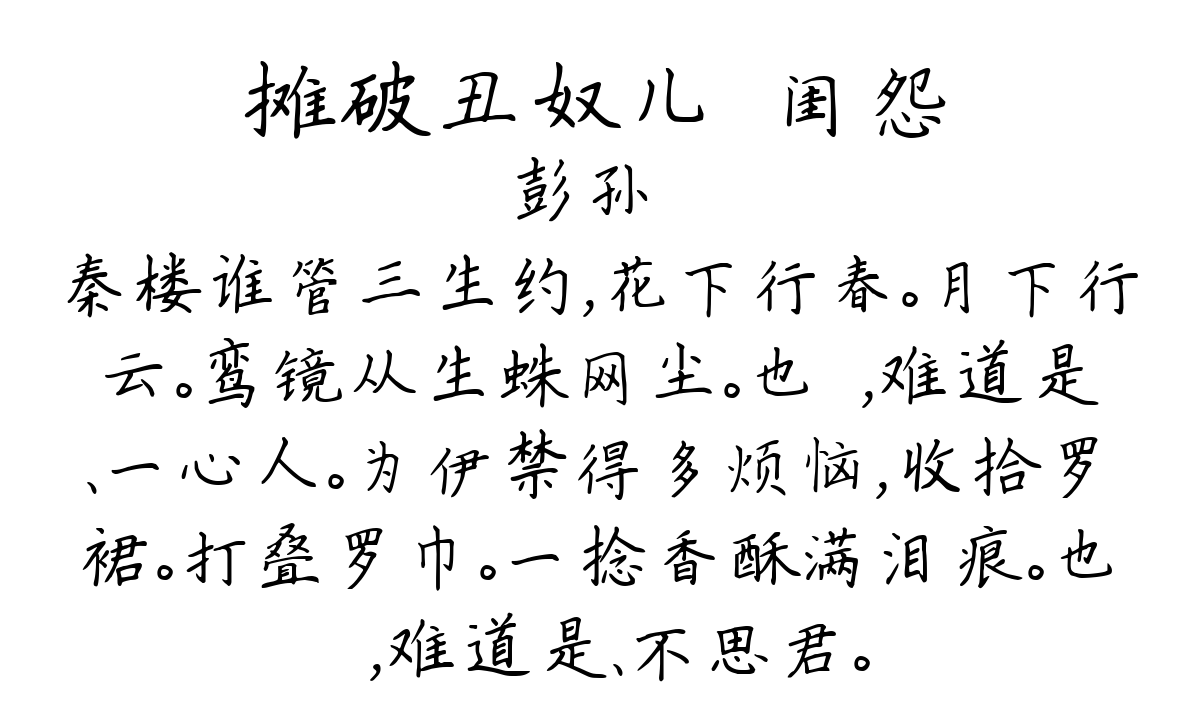 摊破丑奴儿 闺怨
彭孙
秦楼谁管三生约,花下行春。月下行
云。鸾镜从生蛛网尘。也 ,难道是
、一心人。为伊禁得多烦恼,收拾罗
裙。打叠罗巾。一捻香酥满泪痕。也
,难道是、不思君。